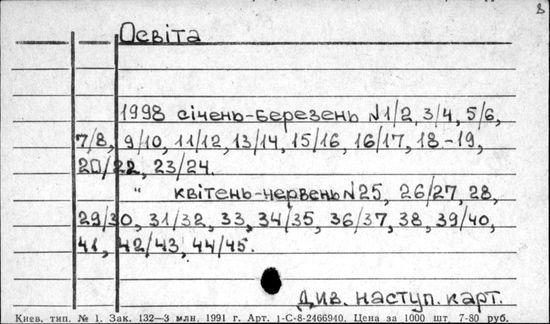 8
Освіта
1998 січень-березень №1/2, 3/4, 5/6,
7/8, 9/10, 11/12, 13/14, 15/16, 16/17, 18-19,
20/22, 23/24.
" квітень-червень №25, 26/27, 28,
29/30, 31/32, 33, 34/35, 36/37, 38, 39/40,
41, 42/43, 44/45.
Див. наступ. карт.
Киев. тип. № 1. Зак. 132—3 млн. 1991 г. Арт. 1-С-8-2466940. Цена за 1000 шт 7-80 руб.